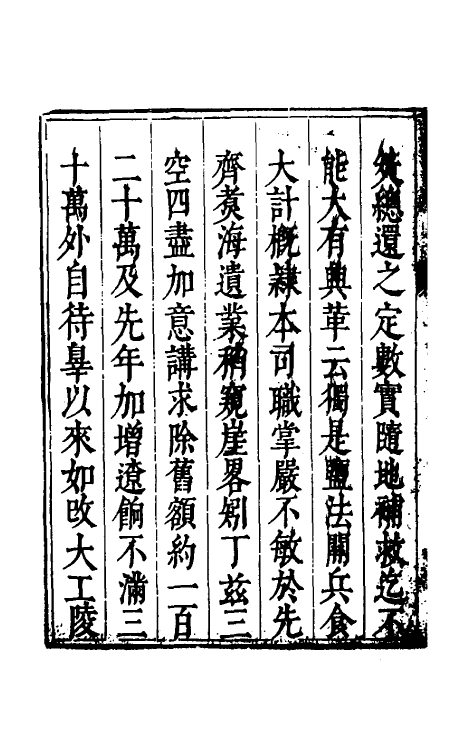 筴總還之定數實隨地補救迄不
能大有興革云獨是鹽法關兵食
大計槪隷本司職掌嚴不敏於先
齊煑海遺業稍窺崖畧矧丁兹三
空四盡加意講求除舊額約一百
二十萬及先年加增遼餉不滿三
十萬外自待辠以來如改大工陵